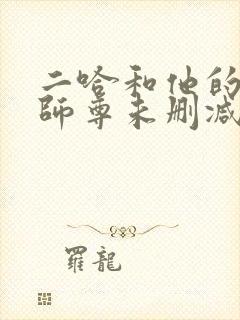 二哈和他的
師尊未删减
羅龍